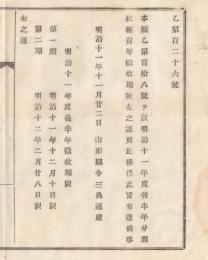 乙第百二十六號
本縣乙第百拾八號ヲ以明治十一年度後半年分郡
試經費等徴收期限左之通更正候條此旨布達候事
明治十一年十一月廿二日 山形縣令三島通庸
明治十一年度後半年徴收期限
第一期 明治十一年十二月十日限
第二期 明治十二年二月廿八日限
右之通